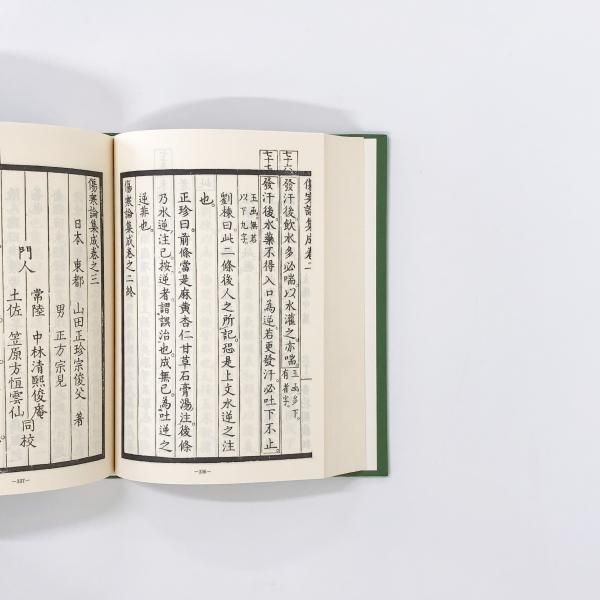 傷寒論集成卷二
七十六 發汗後飲水多必喘以水灌之亦喘 玉函多下有者字
七十七 發汗後水藥不得入口為逆若更發汗必吐下不止
玉函無若以下九字
劉棟曰此二條後人之所記恐是上文水逆之注
也
正珍曰前條當是麻黃杏仁甘草石膏湯注後條
乃水逆注已按逆者謂誤治也成無已為吐逆
逆非也
傷寒論集成卷之二終
—336—
傷寒論集成卷之三
日本 東都 山田正珍宗俊父 著
男 正方宗見
門人 常陸 中林清熙俊庵
土佐 笠原方恒雲仙 同校
—337—